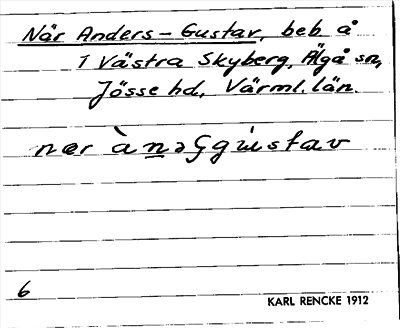 När Anders-Gustav, beb å
1 Västra Skyberg, Älgå sn,
Jösse hd, Värml. län.
nær ànəʂgùstav
6
KARL RENCKE 1912